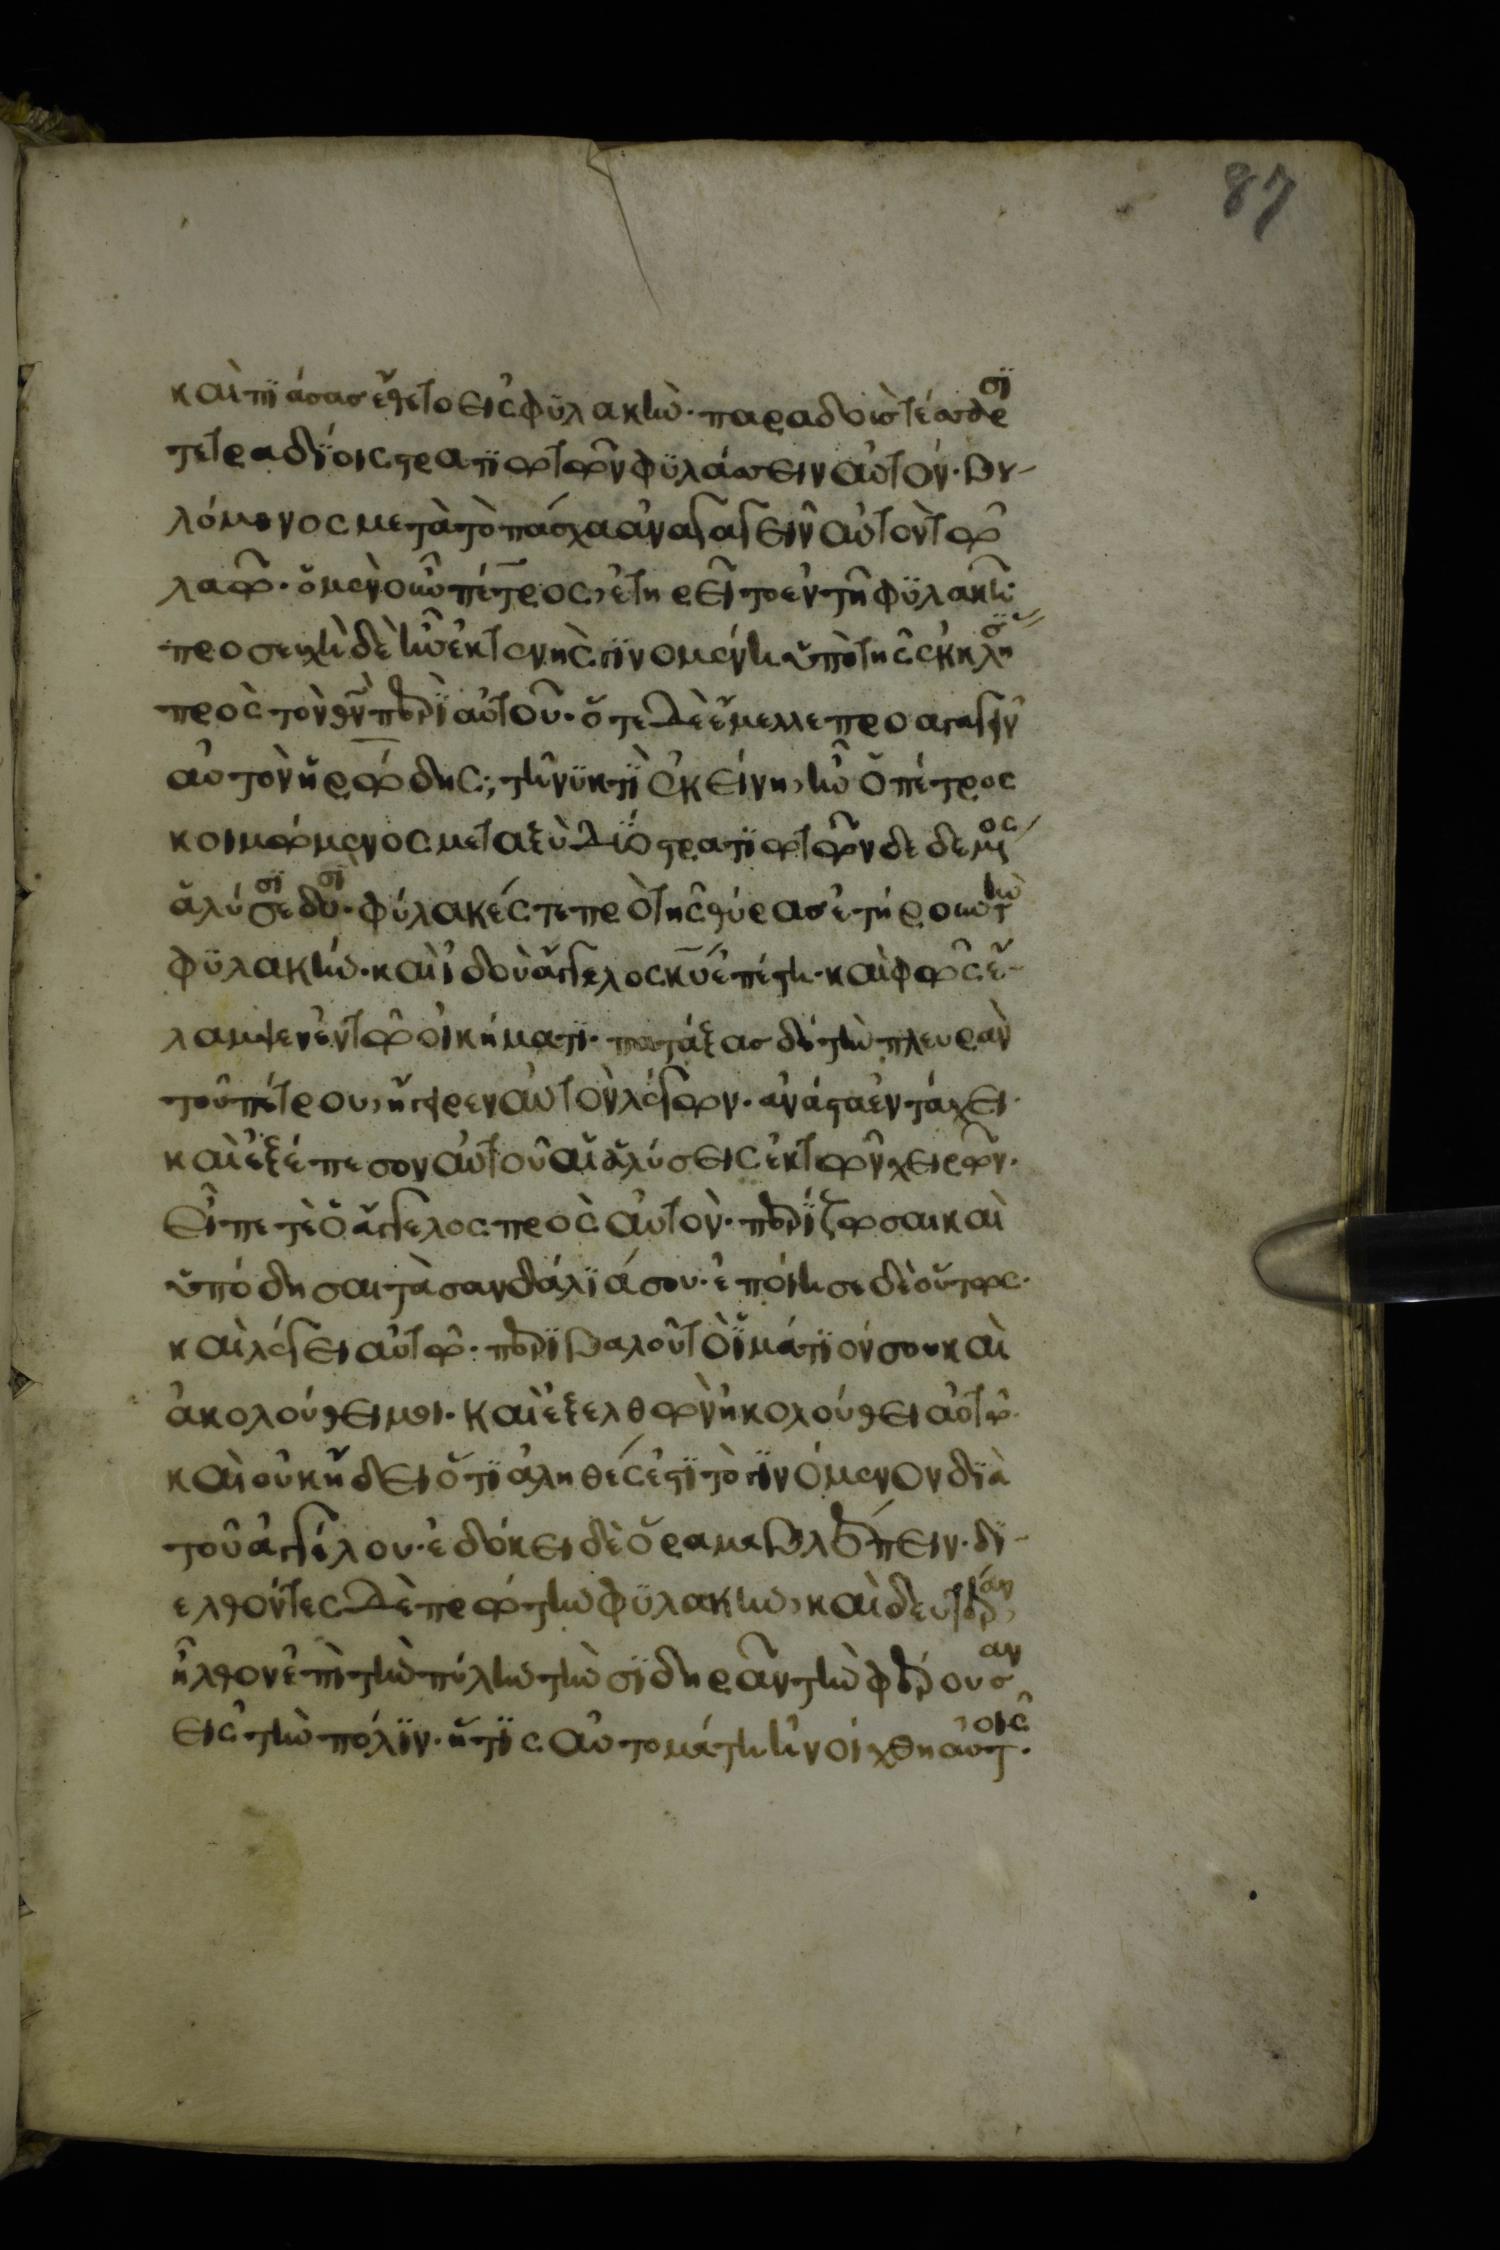 87
καὶ πϊάσας ἔθετο εἰς φϋλακὴν· παραδοὺς τέσσαρσϊ
τετραδίοις στρατϊωτῶν φϋλάσσειν αὐτόν· βου-
λόμενος μετὰ τὸ πάσχα ἀναγαγεῖν αὐτὸν τῷ
λαῷ· ὁ μὲν οὖν πέτρος, ἐτηρεῖτο ἐν τῆ φϋλακῆ·
προσευχὴ δὲ ἦν ἐκτενὴς γϊνομένη ὑπὸ τῆς ἐκκλησϊ
πρὸς τὸν θν περὶ αὐτοῦ· ὅτε δὲ ἔμελλε προαγαγεῖν
αὐτὸν ἡρώδης; τῆ νϋκτϊ ἐκείνη, ἦν ὁ πέτρος
κοιμώμενος μεταξὺ δύο στρατϊωτῶν δεδεμένος
ἁλύσεσϊ δυσϊ· φύλακές τε πρὸ τῆς θύρας ἐτήρουν τὴν
φϋλακήν· καὶ ἰδοὺ ἄγγελος κυ ἐπέστη· καὶ φῶς ἔ-
λαμψεν ἐν τῷ οἰκήματϊ· πατάξας δὲ τὴν πλευρὰν
τοῦ πέτρου, ἤγειρεν αὐτὸν λέγων· ἀνάστα ἐν τάχει·
καὶ ἐξέπεσον αὐτοῦ αἱ ἁλύσεις ἐκ τῶν χειρῶν·
εἶπέ τε ὁ ἄγγελος πρὸς αὐτὸν· περίζωσαι καὶ
ὑπόδησαι τὰ σανδάλϊά σου· ἐποίησε δὲ οὕτως·
καὶ λέγει αὐτῷ· περϊβαλοῦ τὸ ἱμάτϊόν σου καὶ
ἀκολούθει μοι· καὶ ἐξελθὼν ἠκολούθει αὐτῷ·
καὶ οὐκ ἤδει ὅτϊ ἀληθές ἐστϊ τὸ γϊνόμενον δϊὰ
τοῦ ἀγγέλου· ἐδόκει δὲ ὅραμα βλέπειν· δϊ-
ελθόντες δὲ πρώτην φϋλακὴν, καὶ δευτέραν,
ἦλθον ἐπὶ τὴν πύλην τὴν σϊδηρᾶν τὴν φέρουσαν
εἰς τὴν πόλϊν· ἥτϊς αὐτομάτη ἠνοίχθη αὐτοῖς·